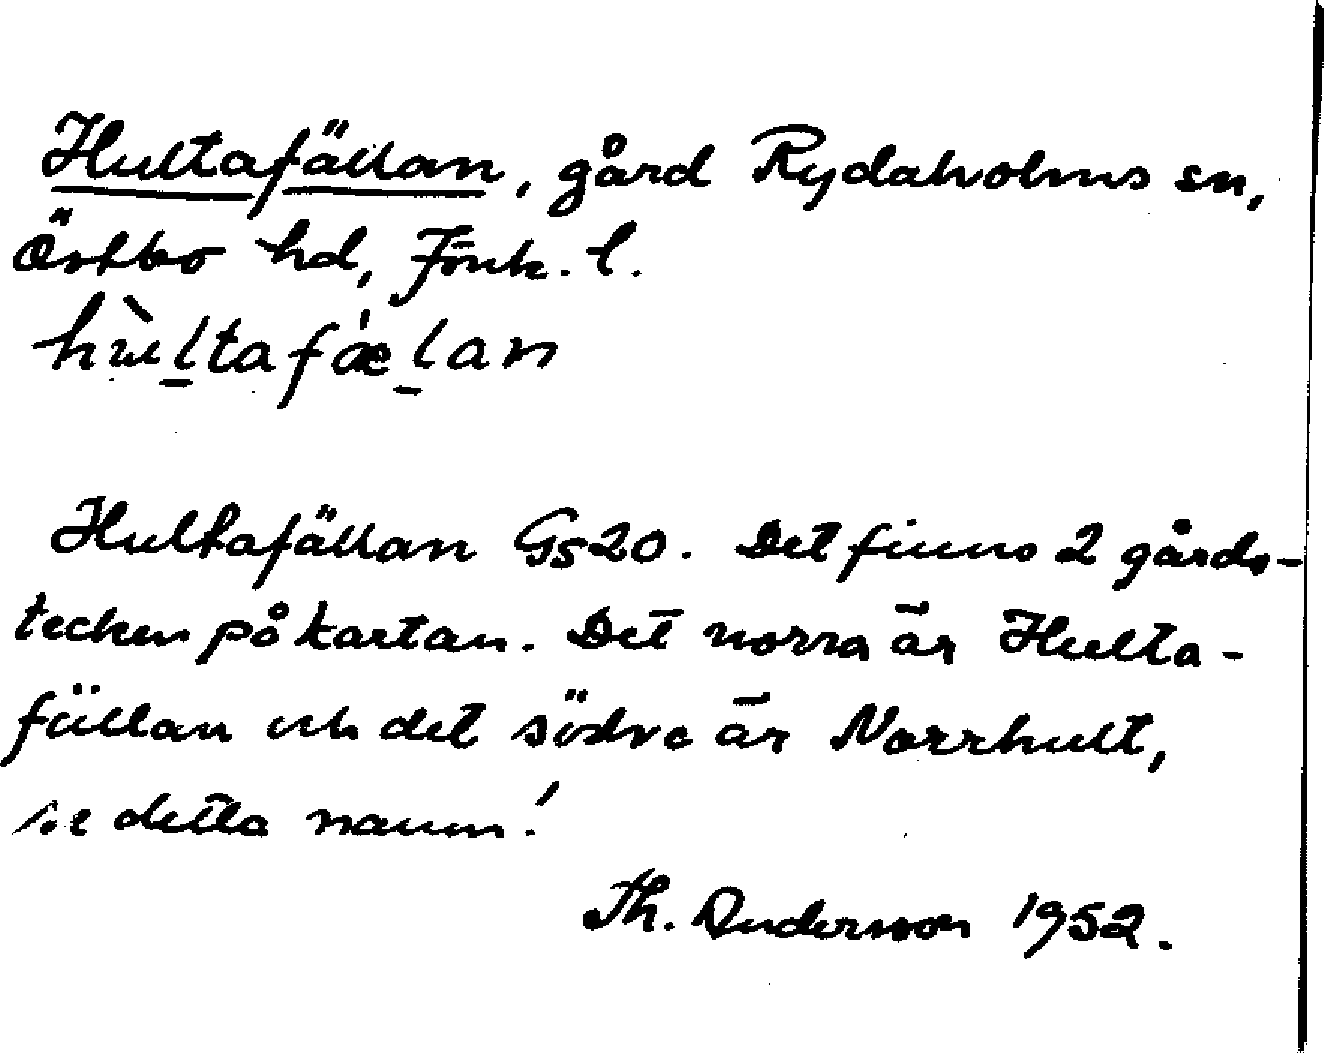 Hultafällan, gård Rydaholms sn,
Östbo hd, Jönk. l.
hùltafǽlan
Hultafällan Gs20. Det finns 2 gårds-
tecken på kartan. Det norra är Hulta-
fällan och det södra är Norrhult,
se detta namn!
Th. Andersson 1952.